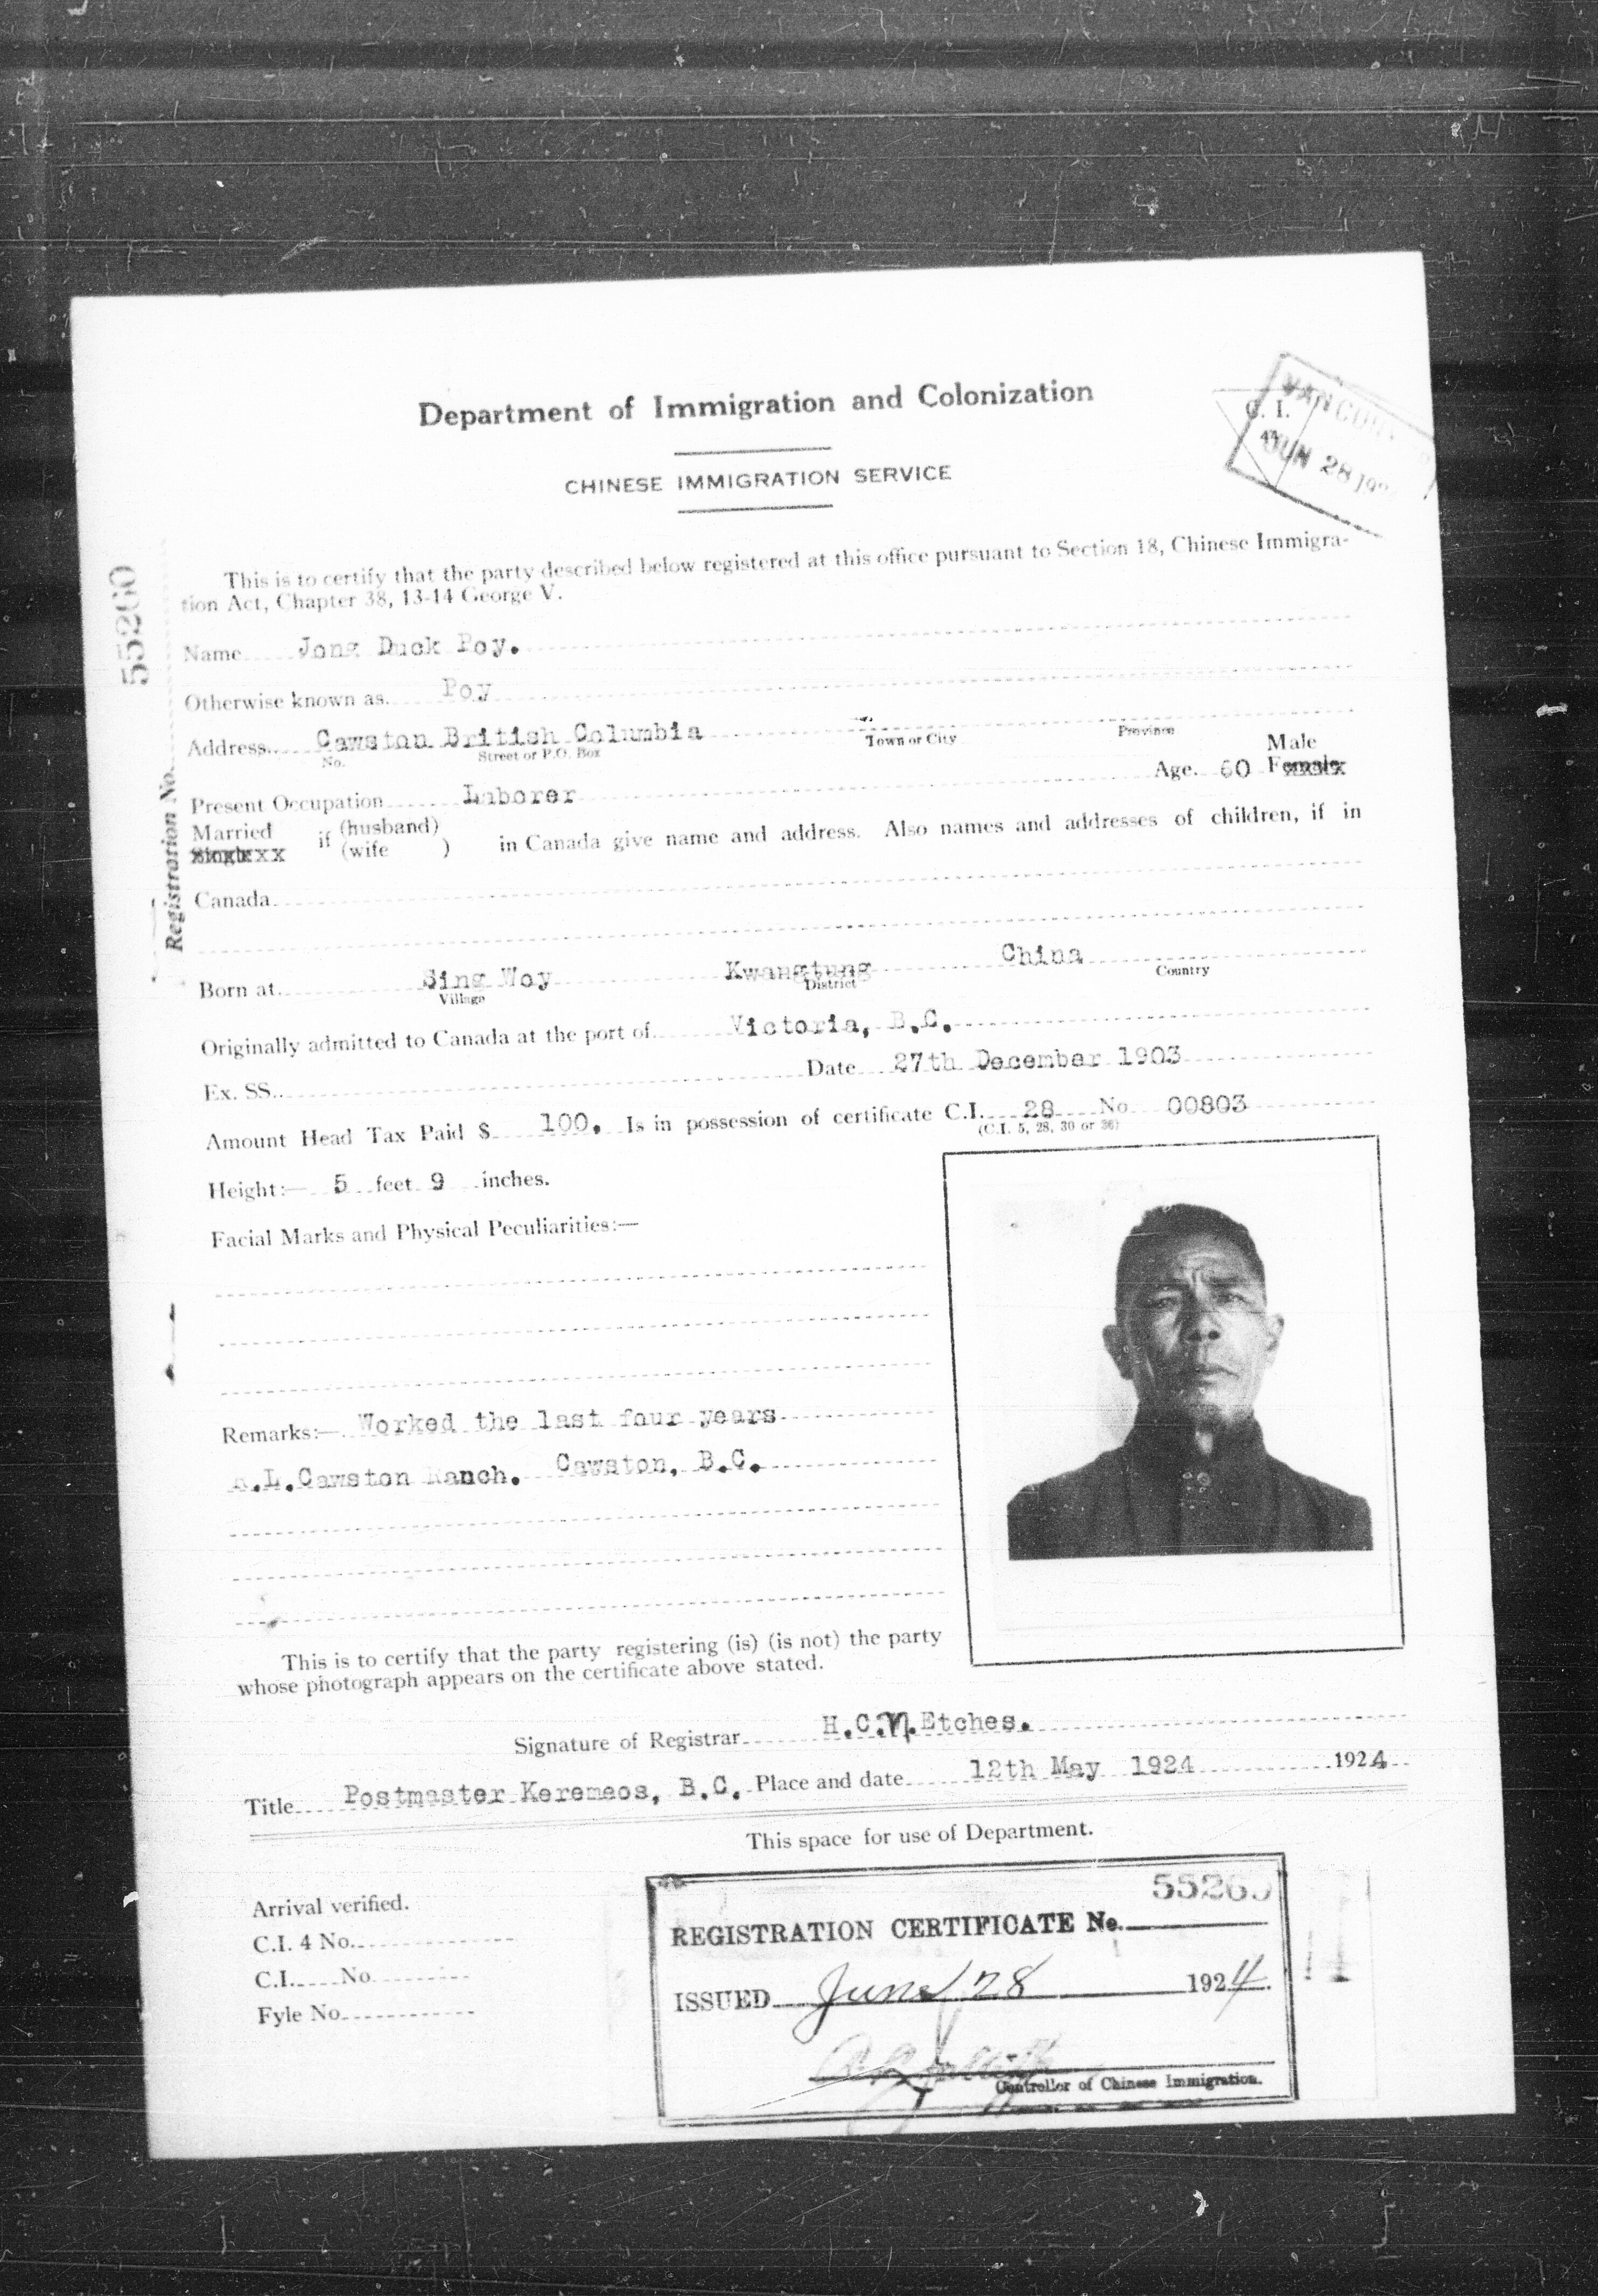 Department of Immigration and Colonization
CHINESE IMMIGRATION SERVICE
C. I.
JUN 28 192
This is to certify that the party described below registered at this office pursuant to Section 18, Chinese Immigra-
tion Act, Chapter 38, 13-14 George V.
Registration No. 55260
Name Jong Duck Poy.
Otherwise known as. Poy
Address Cawston British Columbia
No. Street or P.O. Box Town or City Province
Male
Age. 60 Female
Present Occupation Laborer
Married if (husband) in Canada give name and address. Also names and addresses of children, if in
Single (wife )
Canada
Born at Sing Woy Kwangtung China
Village District Country
Originally admitted to Canada at the port of Victoria, B.C.
Ex. SS. Date 27th December 1903
Amount Head Tax Paid $ 100. Is in possession of certificate C.I. 28 No 00803
(C.I. 5, 28, 30 or 36)
Height:— 5 feet 9 inches.
Facial Marks and Physical Peculiarities:—
Remarks:— Worked the last four years
.L.Cawston Ranch. Cawston, B.C.
This is to certify that the party registering (is) (is not) the party
whose photograph appears on the certificate above stated.
Signature of Registrar H.C.N.Etches.
Title Postmaster Keremeos, B.C. Place and date 12th May 1924 1924
This space for use of Department.
Arrival verified.
C.I. 4 No.
C.I. No
Fyle No
55260
REGISTRATION CERTIFICATE No.
ISSUED June 28 1924.
Controller of Chinese Immigration.